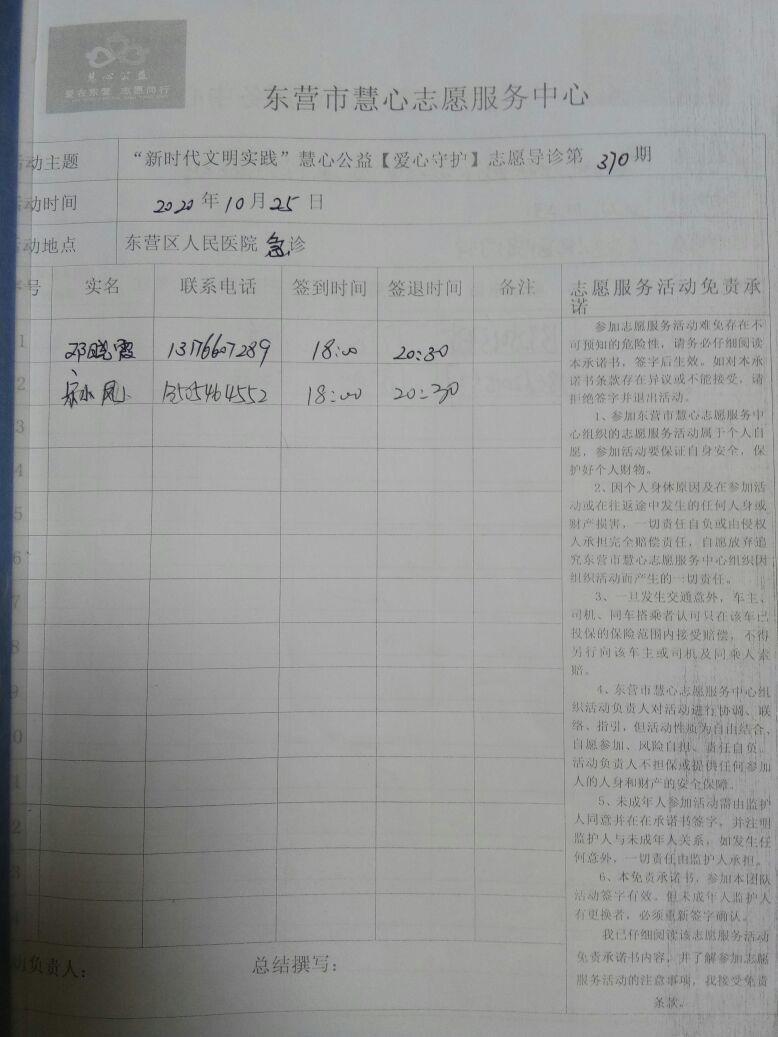 慧心公益
爱在东营 志愿同行
东营市慧心志愿服务中心
动主题 “新时代文明实践”慧心公益【爱心守护】志愿导诊第 370 期
动时间 2020 年 10 月 25 日
动地点 东营区人民医院 急诊
号 实名 联系电话 签到时间 签退时间 备注
1 邓晓霞 13176607289 18:00 20:30
2 18:00 20:30
3
4
5
6
7
8
9
0
1
2
3
志愿服务活动免责承
诺
参加志愿服务活动难免存在不
可预知的危险性，请务必仔细阅读
本承诺书，签字后生效。如对本承
诺书条款存在异议或不能接受，请
拒绝签字并退出活动。
1、参加东营市慧心志愿服务中
心组织的志愿服务活动属于个人自
愿，参加活动要保证自身安全，保
护好个人财物。
2、因个人身体原因及在参加活
动或在往返途中发生的任何人身或
财产损害，一切责任自负或由侵权
人承担完全赔偿责任，自愿放弃追
究东营市慧心志愿服务中心组织因
组织活动而产生的一切责任。
3、一旦发生交通意外，车主、
司机、同车搭乘者认可只在该车已
投保的保险范围内接受赔偿，不得
另行向该车主或司机及同乘人索
赔。
4、东营市慧心志愿服务中心组
织活动负责人对活动进行协调、联
络、指引，但活动性质为自由结合、
自愿参加、风险自担、责任自负。
活动负责人不担保或提供任何参加
人的人身和财产的安全保障。
5、未成年人参加活动需由监护
人同意并在在承诺书签字，并注明
监护人与未成年人关系，如发生任
何意外，一切责任由监护人承担。
6、本免责承诺书，参加本团队
活动签字有效。但未成年人监护人
有更换者，必须重新签字确认。
我已仔细阅读该志愿服务活动
免责承诺书内容，并了解参加志愿
服务活动的注意事项，我接受免责
条款。
动负责人： 总结撰写：